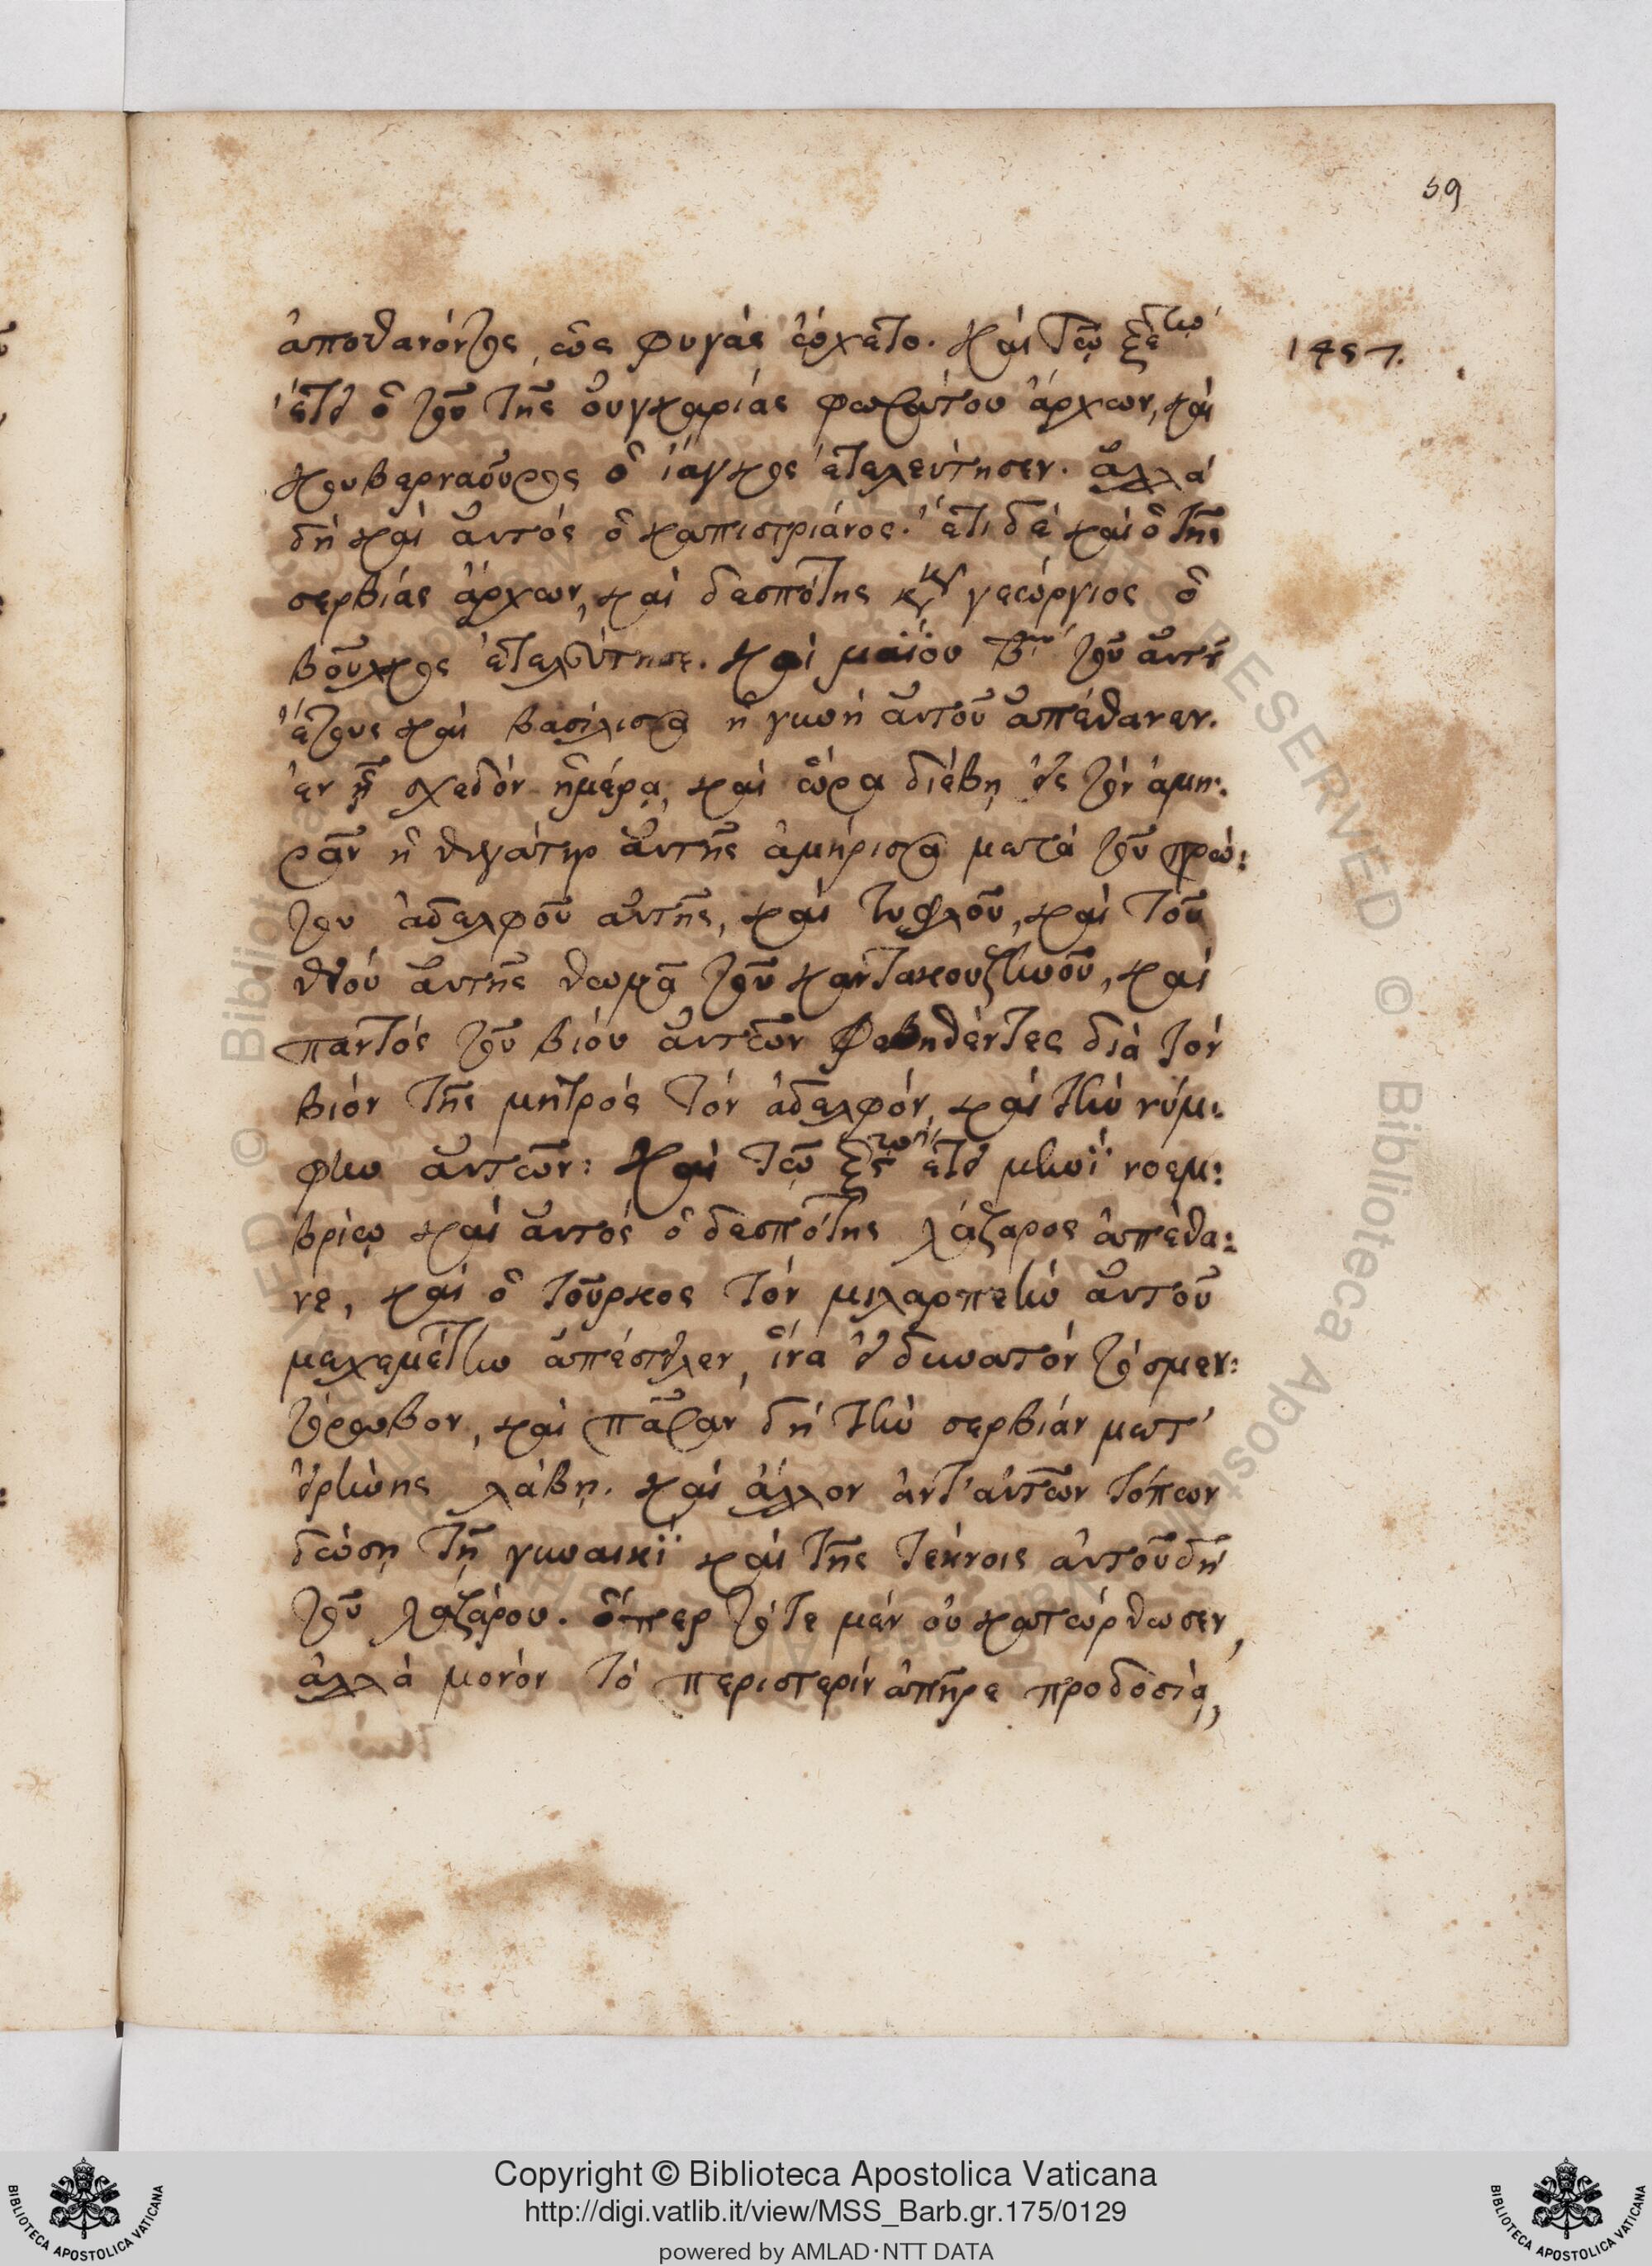 59
ἀποθανόντος, ὡς φυγὰς ᾤχετο. καὶ τῷ ξε
1457.
ἔτει ὁ τοῦ τῆς οὑγκαρίας φωσάτου ἄρχων, καὶ
κουβερναοῦρος ὁ ἰάγκος ἐτελεύτησεν. ἀλλὰ
δὴ καὶ αὐτός ὁ καπιστριάνος. ἔτι δὲ καὶ ὁ τῆς
σερβίας ἄρχων, καὶ δεσπότης κὺρ γεώργιος ὁ
βοῦλκος ἐτελεύτησε. καὶ μαΐου τοῦ αὐτοῦ
ἔτους καὶ βασίλισσα ἡ γυνὴ αὐτοῦ ἀπέθανεν.
ἐν ᾗ σχεδὸν ἡμέρᾳ, καὶ ὥρα διέβη εἰς τὸν ἀμη:
ρᾶν ἡ θυγάτηρ αὐτῆς ἀμήρισσα μετὰ τοῦ πρώ:
του ἀδελφοῦ αὐτῆς, καὶ τυφλοῦ, καὶ τοῦ
θείου αὐτῆς θωμᾶ τοῦ καντακουζηνοῦ, καὶ
παντὸς τοῦ βίου αὐτῶν φοβηθέντες διὰ τὸν
βιὸν τῆς μητρός τὸν ἀδελφόν, καὶ τὴν νύμ:
φην αὐτῶν: καὶ τῷ ἔτει μηνὶ νοεμ:
βρίῳ καὶ αὐτός ὁ δεσπότης λάζαρος ἀπέθα:
νε, καὶ ὁ τοῦρκος τὸν μιλαρπεὴν αὐτοῦ
μεχεμέτην ἀπέστειλεν, ἵνα εἰ δυνατὸν τὸ σμεν:
τόροβον, καὶ πᾶσαν δὴ τὴν σερβίαν μετ'
εἰρήνης λάβῃ. καὶ ἄλλον ἀντ' αὐτῶν τόπων
δώσῃ τῇ γυναικὶ καὶ τῆς τέκνοις αὐτοῦ δὴ
τοῦ λαζάρου. ὅπερ τότε μὲν οὐ κατώρθωσεν,
ἀλλὰ μονόν τὸ περιστερίν ἀπῆρε προδοσίᾳ,
Copyright © Biblioteca Apostolica Vaticana
http://digi.vatlib.it/view/MSS_Barb.gr.175/0129
powered by AMLAD·NTT DATA
BIBLIOTECA APOSTOLICA VATICANA
BIBLIOTECA APOSTOLICA VATICANA